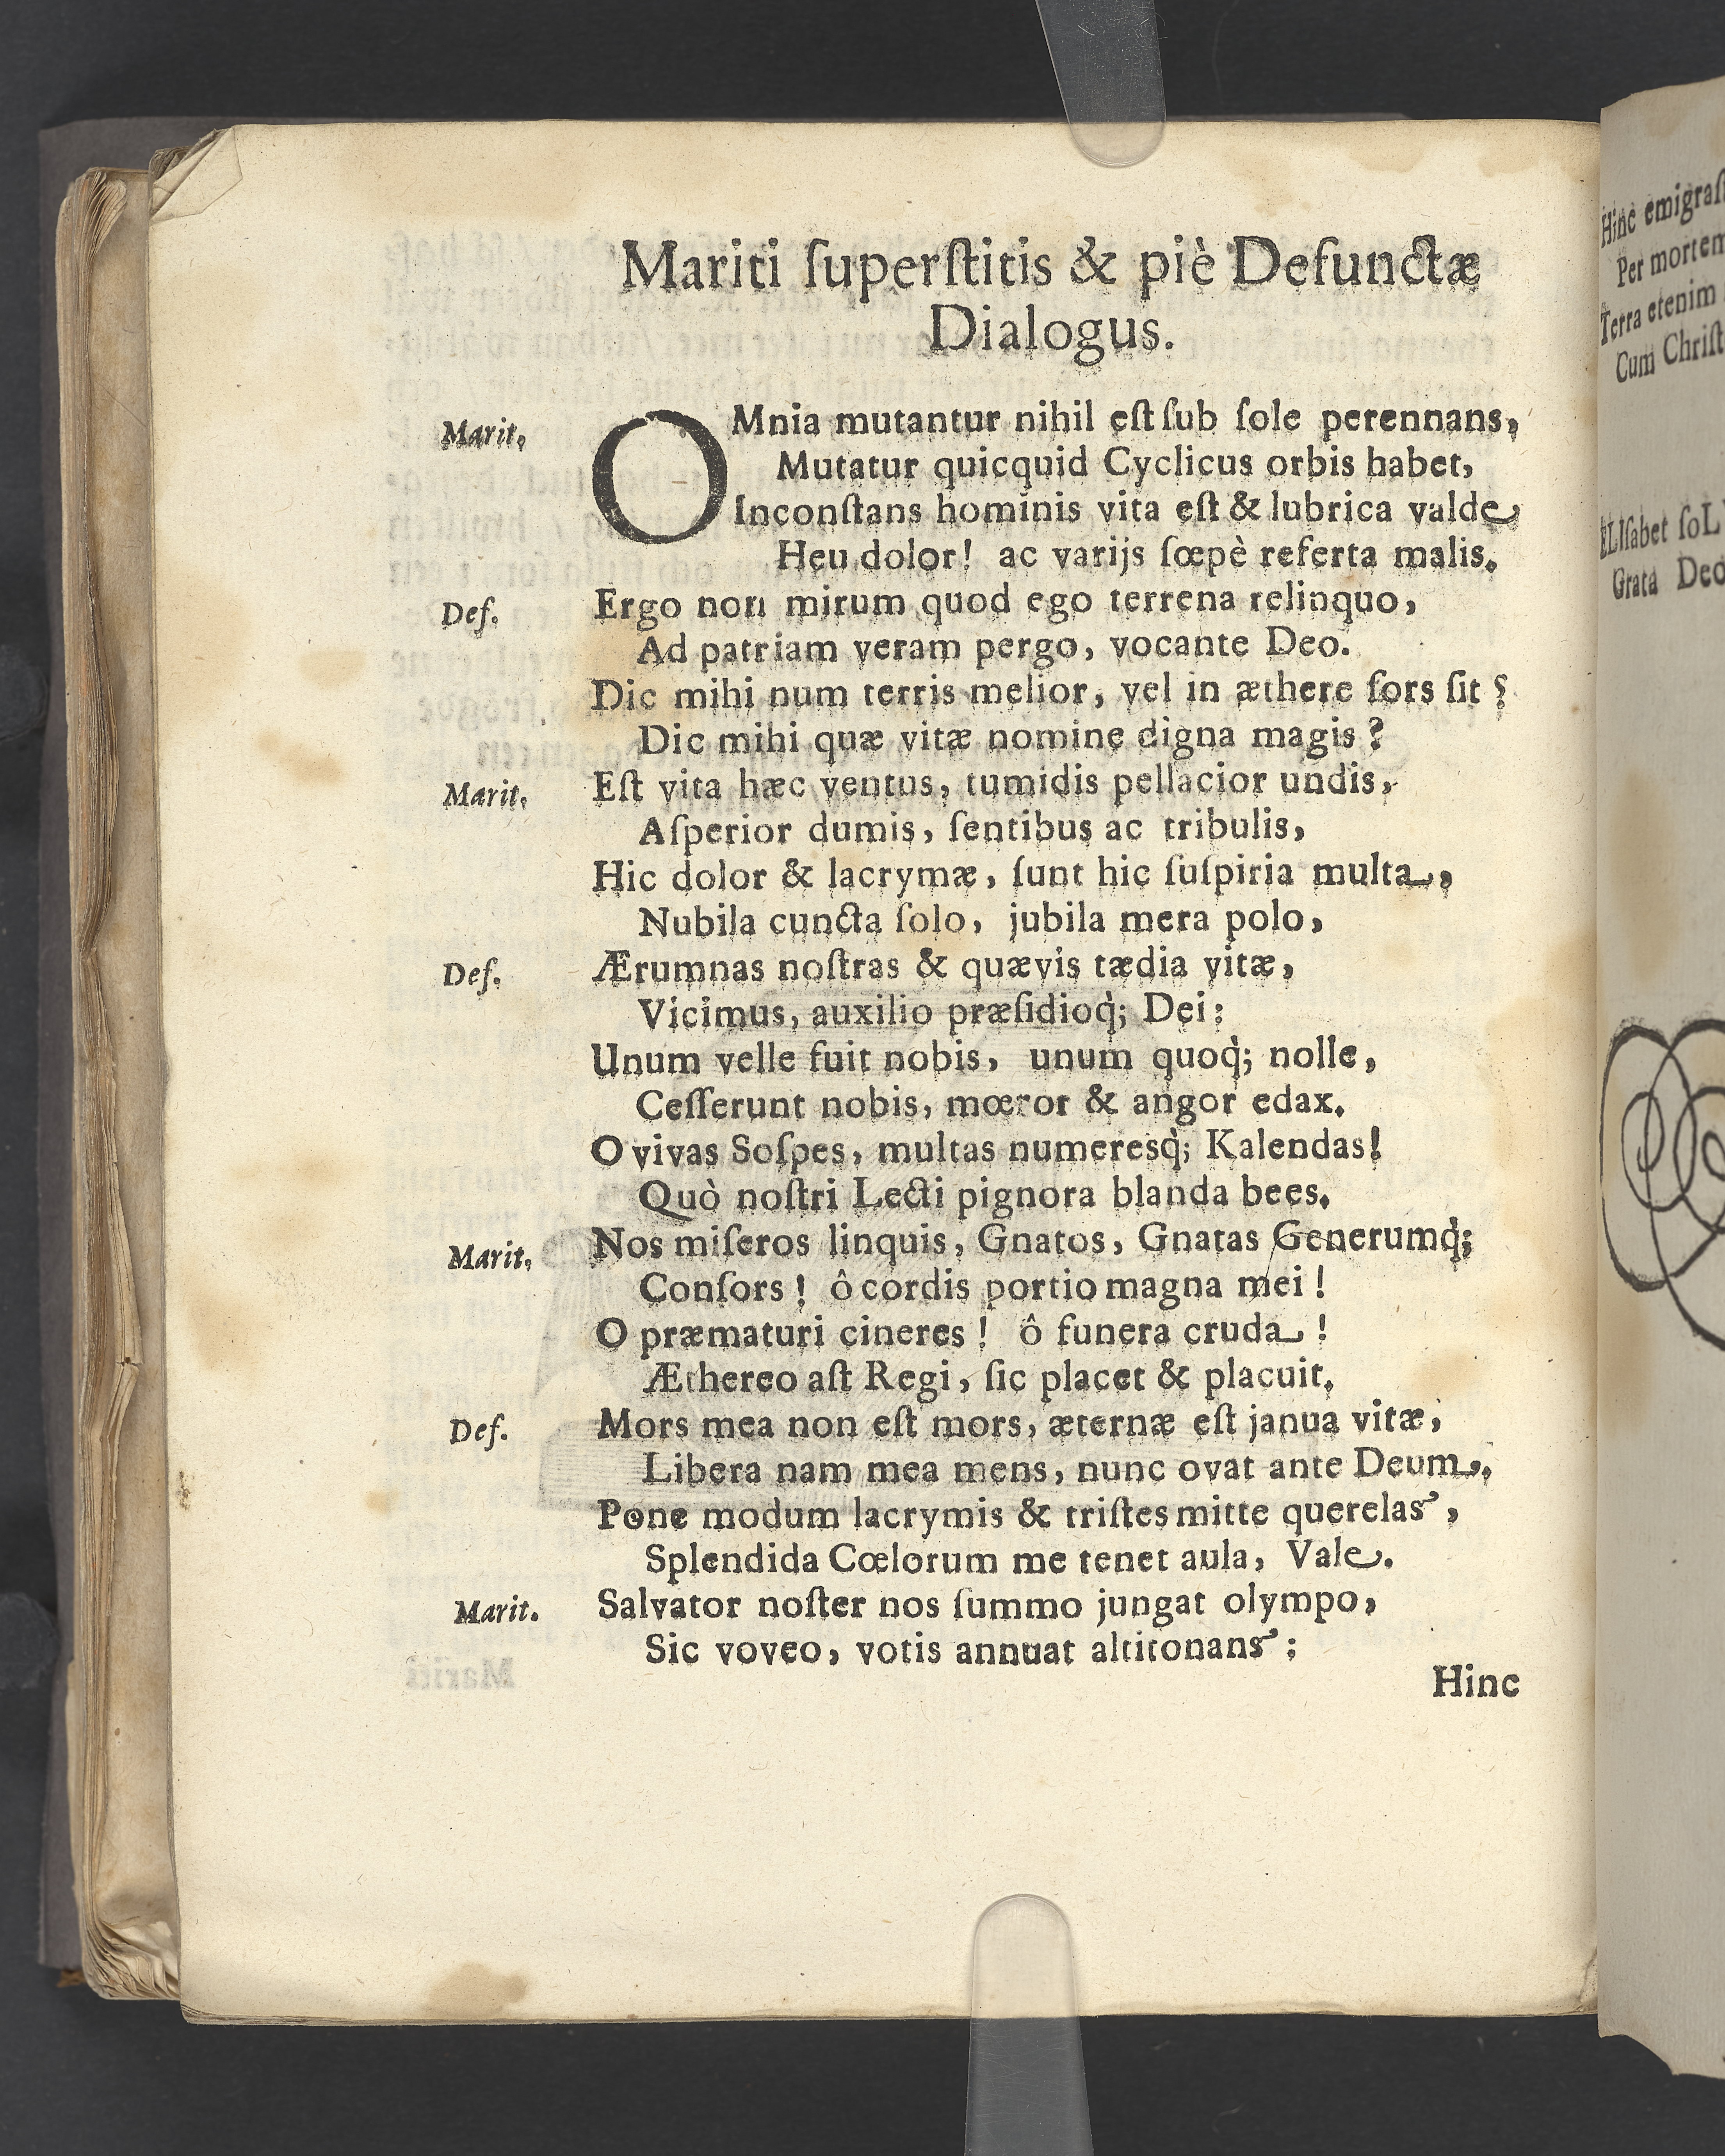 Mariti ſuperſtitis & piè Defunctæ
Dialogus.
Marit. OMnia mutantur nihil eſt ſub ſole perennans,
Mutatur quicquid Cyclicus orbis habet,
Inconſtans hominis vita eſt & lubrica valde
Heu dolor! ac varijs ſœpè referta malis.
Def. Ergo non mirum quod ego terrena relinquo,
Ad patriam veram pergo, vocante Deo.
Dic mihi num terris melior, vel in æthere ſors ſit?
Dic mihi quæ vitæ nomine digna magis?
Marit. Eſt vita hæc ventus, tumidis pellacior undis,
Aſperior dumis, ſentibus ac tribulis,
Hic dolor & lacrymæ, ſunt hic ſuſpiria multa,
Nubila cuncta ſolo, jubila mera polo,
Def. Ærumnas noſtras & quævis tædia vitæ,
Vicimus, auxilio præſidioq́; Dei:
Unum velle fuit nobis, unum quoq́; nolle,
Ceſſerunt nobis, mœror & angor edax.
O vivas Soſpes, multas numeresq́; Kalendas!
Quò noſtri Lecti pignora blanda bees.
Marit. Nos miſeros linquis, Gnatos, Gnatas Generumq́;
Conſors! ô cordis portio magna mei!
O præmaturi cineres! ô funera cruda!
Æthereo aſt Regi, ſic placet & placuit.
Def. Mors mea non eſt mors, æternæ eſt janua vitæ,
Libera nam mea mens, nunc ovat ante Deum.
Pone modum lacrymis & triſtes mitte querelas,
Splendida Cœlorum me tenet aula, Vale.
Marit. Salvator noſter nos ſummo jungat olympo,
Sic voveo, votis annuat altitonans:
Hinc
Hinc
Per mortem
Terra etenim
Cum
Grata